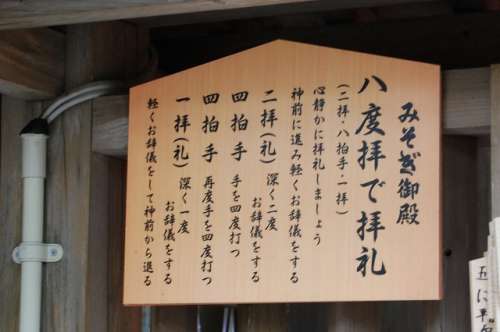 みそぎ御殿
八度拝で拝礼
(二拝・八拍手・一拝)
心静かに拝礼しましょう
神前に進み軽くお辞儀をする
二拝(礼) 深く二度お辞儀をする
四拍手 手を四度打つ
四拍手 再度手を四度打つ
一拝(礼) 深く一度お辞儀をする
軽くお辞儀をして神前から退る